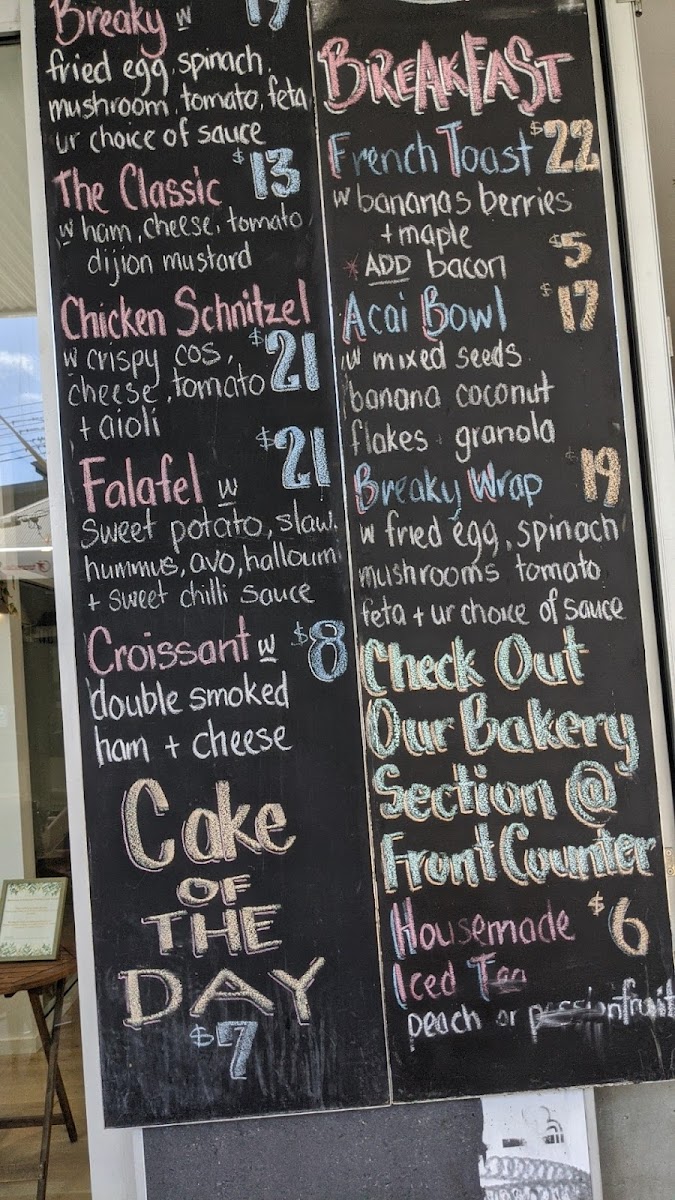 Breaky w
fried egg, spinach,
mushroom, tomato, feta
ur choice of sauce
The Classic $13
w ham, cheese, tomato
dijion mustard
Chicken Schnitzel
w crispy cos, $21
cheese, tomato
+ aioli
Falafel w $21
sweet potato, slaw,
hummus, avo, halloumi
+ sweet chilli sauce
Croissant w $8
double smoked
ham + cheese
Cake
OF
THE
DAY
$7
BREAKFAST
French Toast $22
w bananas berries
+ maple
* ADD bacon $5
Acai Bowl $17
w mixed seeds
banana coconut
flakes granola
Breaky Wrap $19
w fried egg, spinach
mushrooms tomato
feta + ur choice of sauce
Check Out
Our Bakery
Section @
Front Counter
Housemade $6
Iced Tea
peach or passionfruit